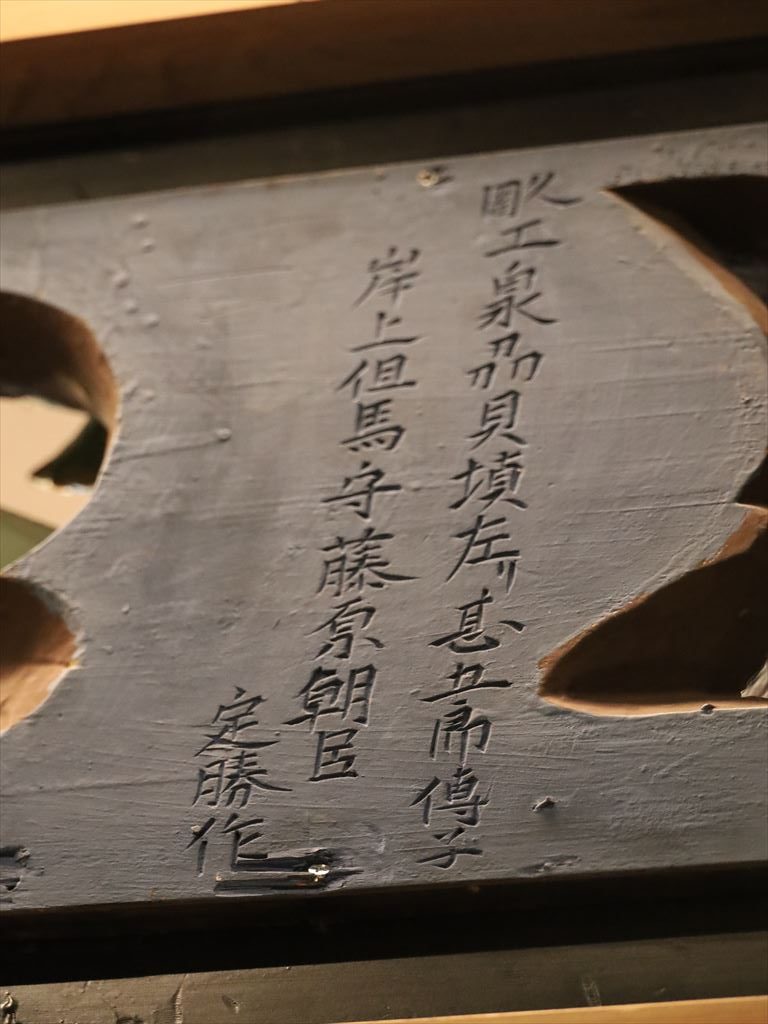 彫工泉刕貝塚左リ甚五郎傳子
岸上但馬守藤原朝臣
定勝作